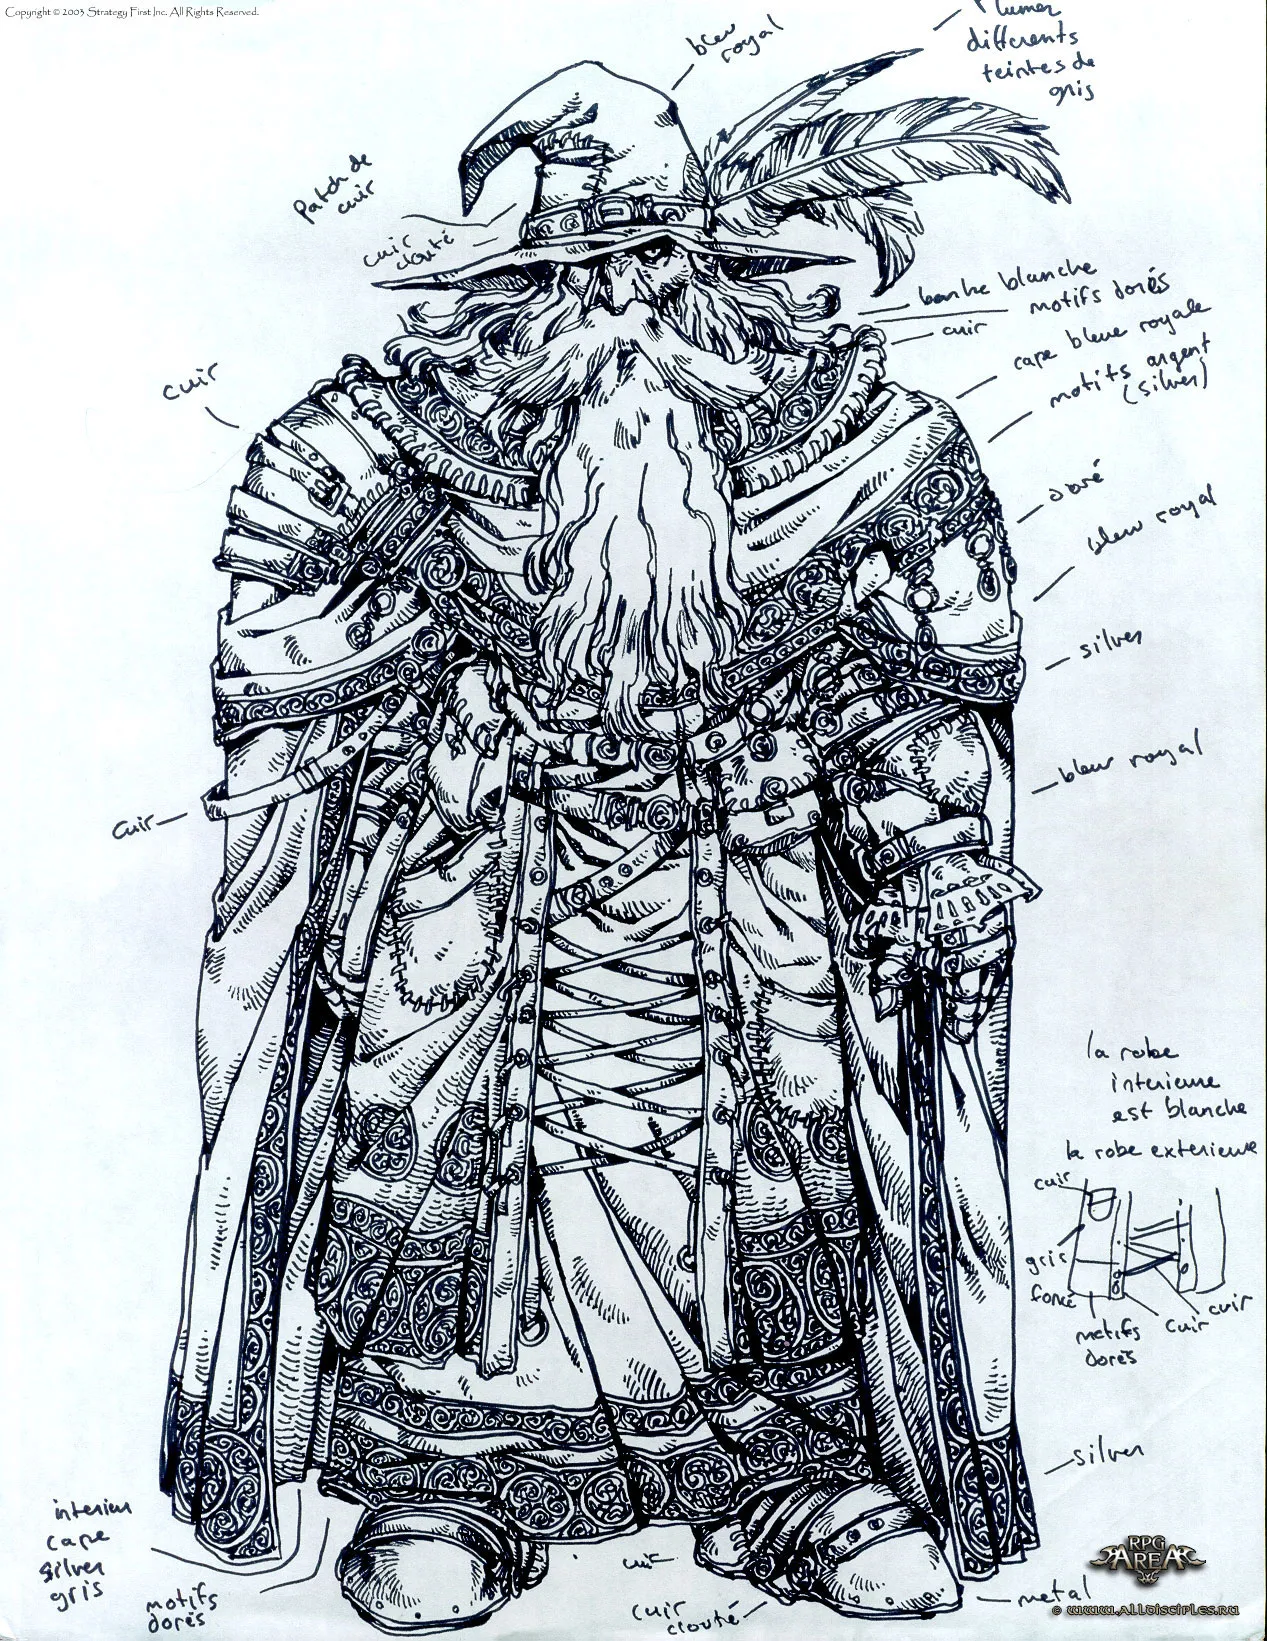 Copyright © 2003 Strategy First Inc. All Rights Reserved.
bleu
royal
Plumes
différents
teintes de
gris
Patch de
cuir
cuir
clouté
bande blanche
motifs dorés
cuir
cape bleue royale
motifs argent
(silver)
cuir
doré
bleu royal
silver
bleu royal
cuir
la robe
interieure
est blanche
la robe exterieure
cuir
gris
foncé
cuir
motifs
dorés
cuir
silver
interieur
cape
silver
gris
motifs
dorés
cuir
cuir
clouté
metal
RPG
AREA
© www.alldisciples.ru